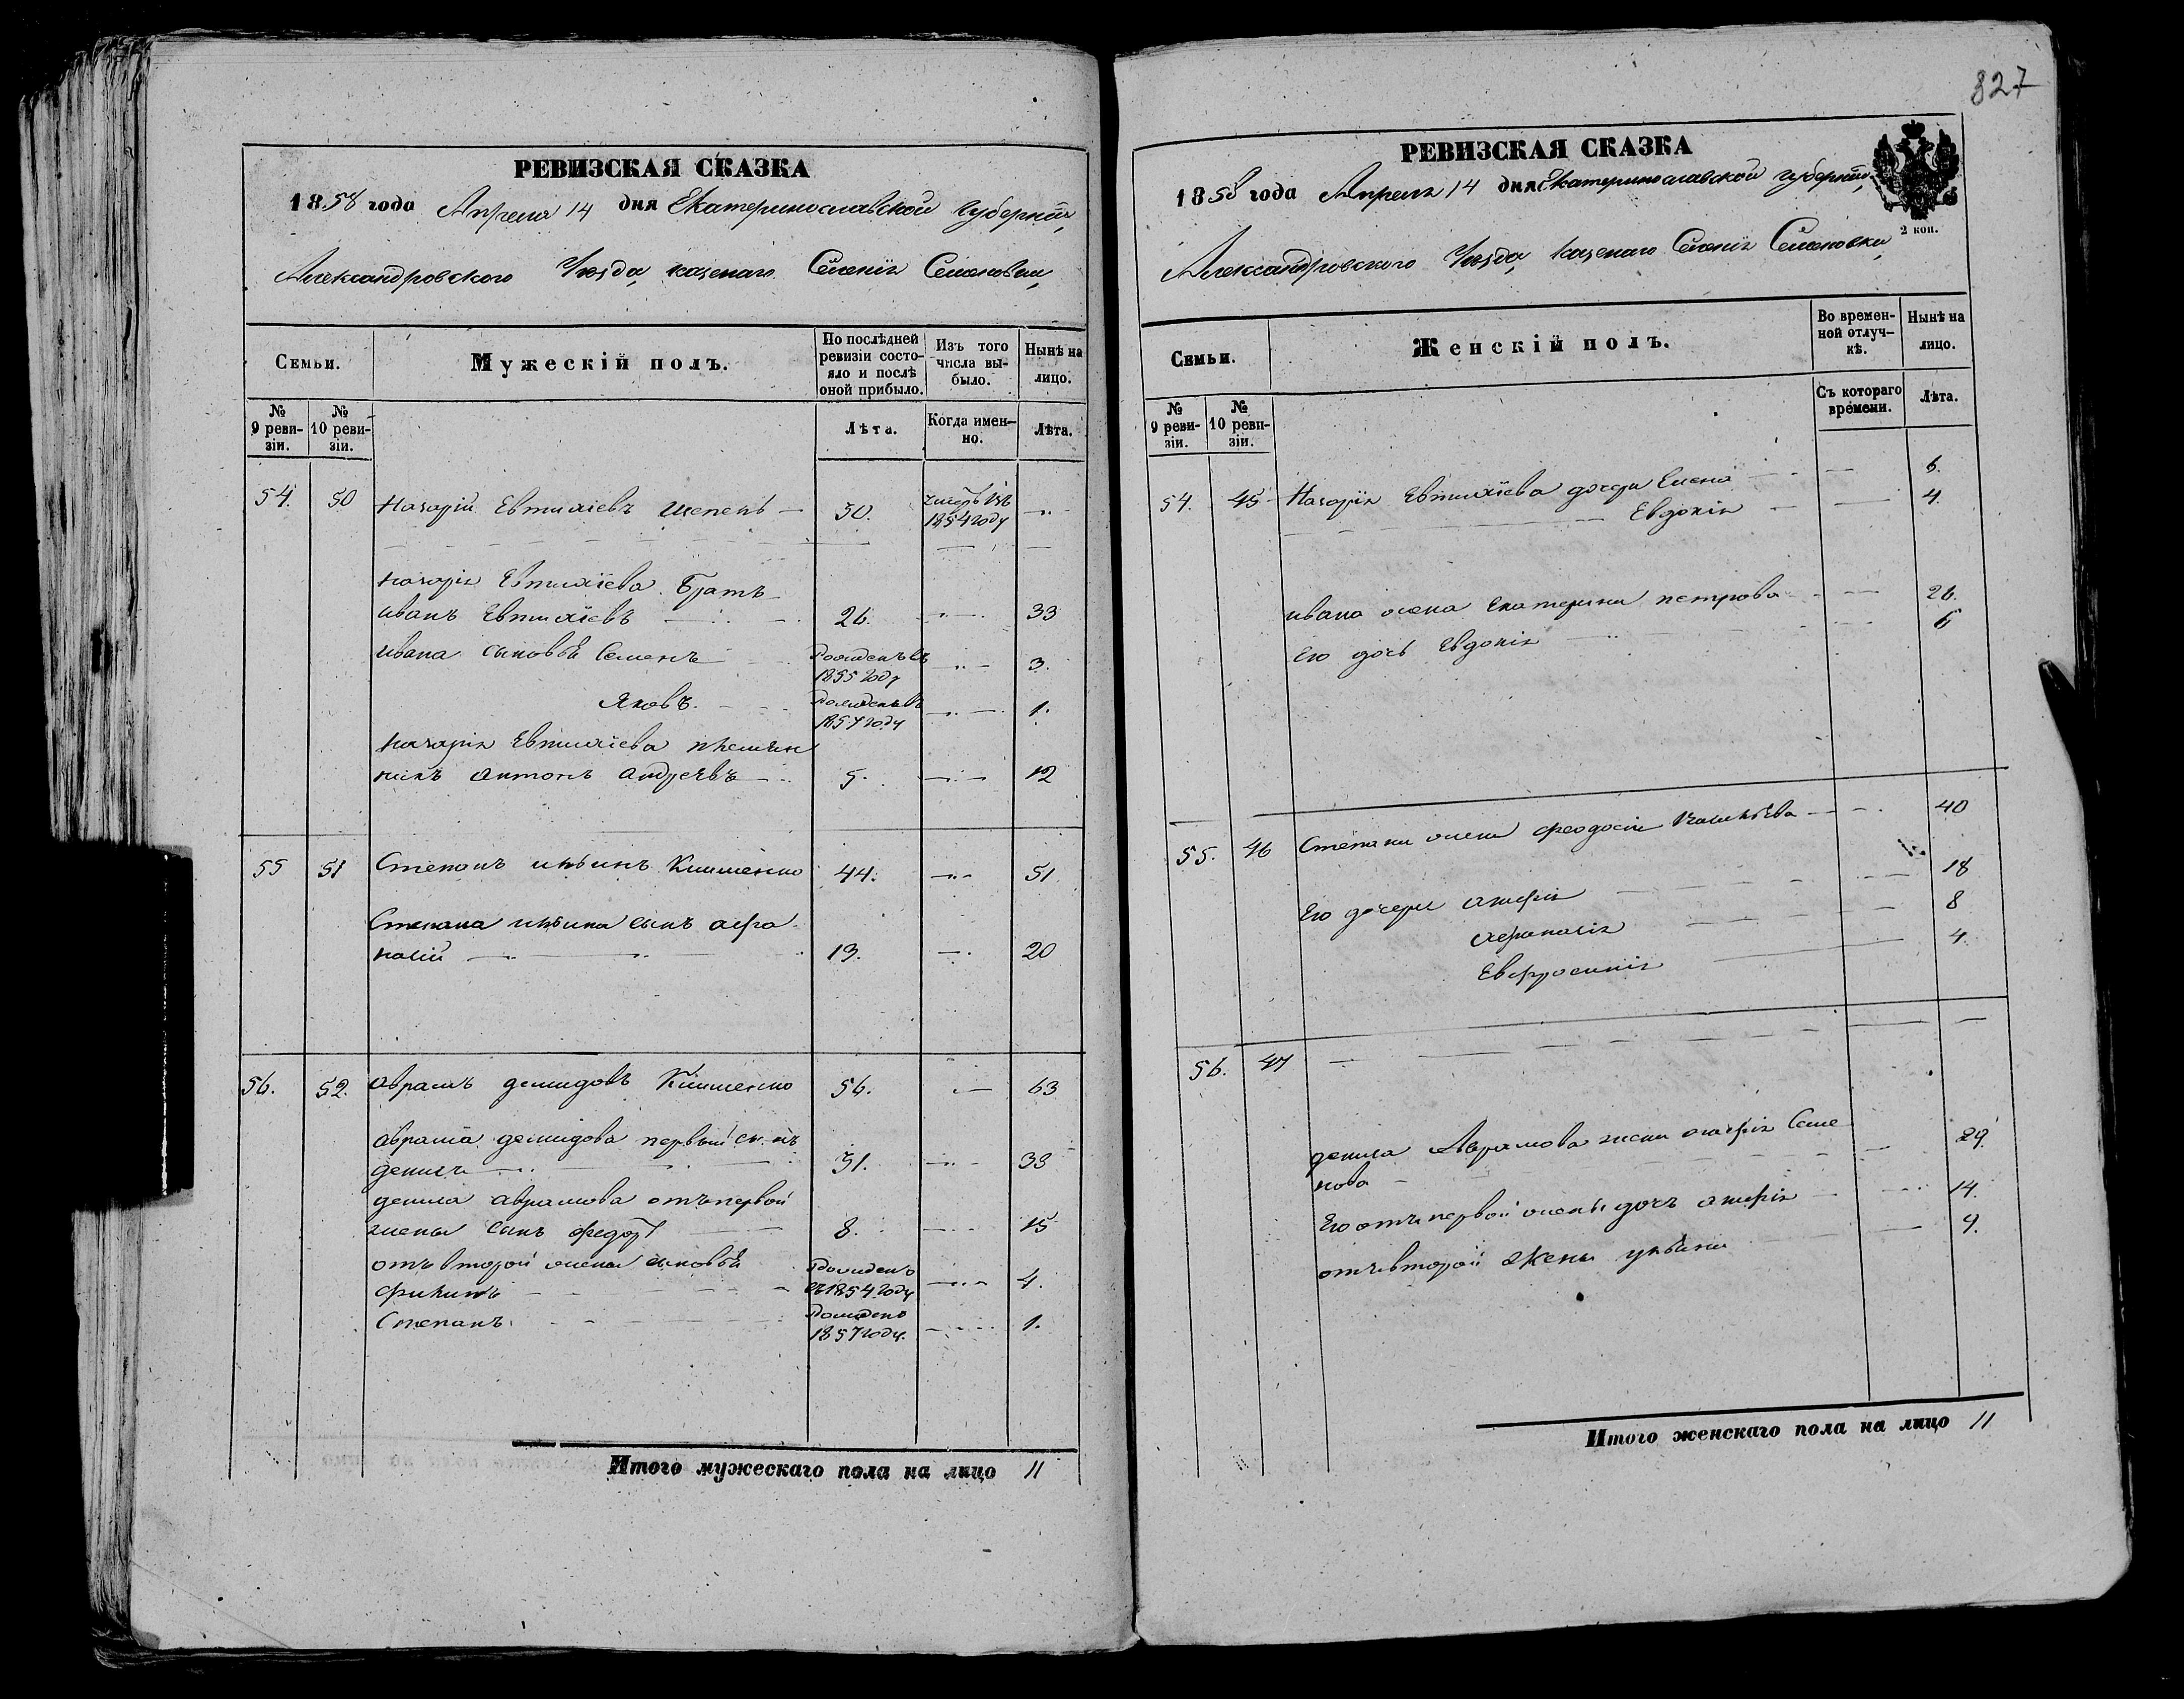 827
РЕВИЗСКАЯ СКАЗКА
1858 года Апреля 14 дня Екатеринославской губернии,
Александровского Уезда, казенаго Селенія Семеновки,
Семьи.
Мужескій полъ.
По послѣдней ревизіи состо-
яло и послѣ
оной прибыло.
Изъ того
числа вы-
было.
Нынѣ на
лицо.
№
9 реви-
зіи.
№
10 реви-
зіи.
Лѣта.
Когда имен-
но.
Лѣта.
54. 50 Назарій Евтихіевъ 30. 1854 году
Назарія Евтихіева Братъ
иванъ Евтихіевъ 26. 33
ивана сыновья Семенъ Рожденъ въ 1855 году 3.
Яковъ Рожденъ въ 1857 году 1.
Назарія Евтихіева племян
никъ антонъ андреевъ 5. 12
55 51 Степанъ ильинъ Клименко 44. 51
Степана ильина сынъ афа
насій 13. 20
56. 52. аврамъ демидовъ Клименко 56. 63
аврама демидова первый сынъ
данила 31. 38
данила аврамова отъ первой
жены сынъ федоръ 8. 15
отъ второй жены сыновья
филипъ Рожденъ въ 1854 году 4.
Степанъ Рожденъ 1857 году. 1.
Итого мужескаго пола на лицо 11
РЕВИЗСКАЯ СКАЗКА
1858 года Апреля 14 дня Екатеринославской губерніи,
2 коп.
Александровского Уезда, казенаго Селенія Семеновки,
Семьи.
Женскій полъ.
Во времен-
ной отлуч-
кѣ.
Нынѣ на
лицо.
№
9 реви-
зіи.
№
10 реви-
зіи.
Съ котораго
времени.
Лѣта.
54. 45 Назарія Евтихіева дочери Елена 6.
Евдокія 4.
ивана жена Екатерина петрова 26.
Его дочь Евдокія 6
55. 46 Степана жена феодосія 40
Его дочери 18
афанасія 8
Евфросинія 4.
56. 47
данила Аврамова жена Семе
нова 29.
Его отъ первой жены дочь 14.
отъ второй жены ульяна 9.
Итого женскаго пола на лицо 11